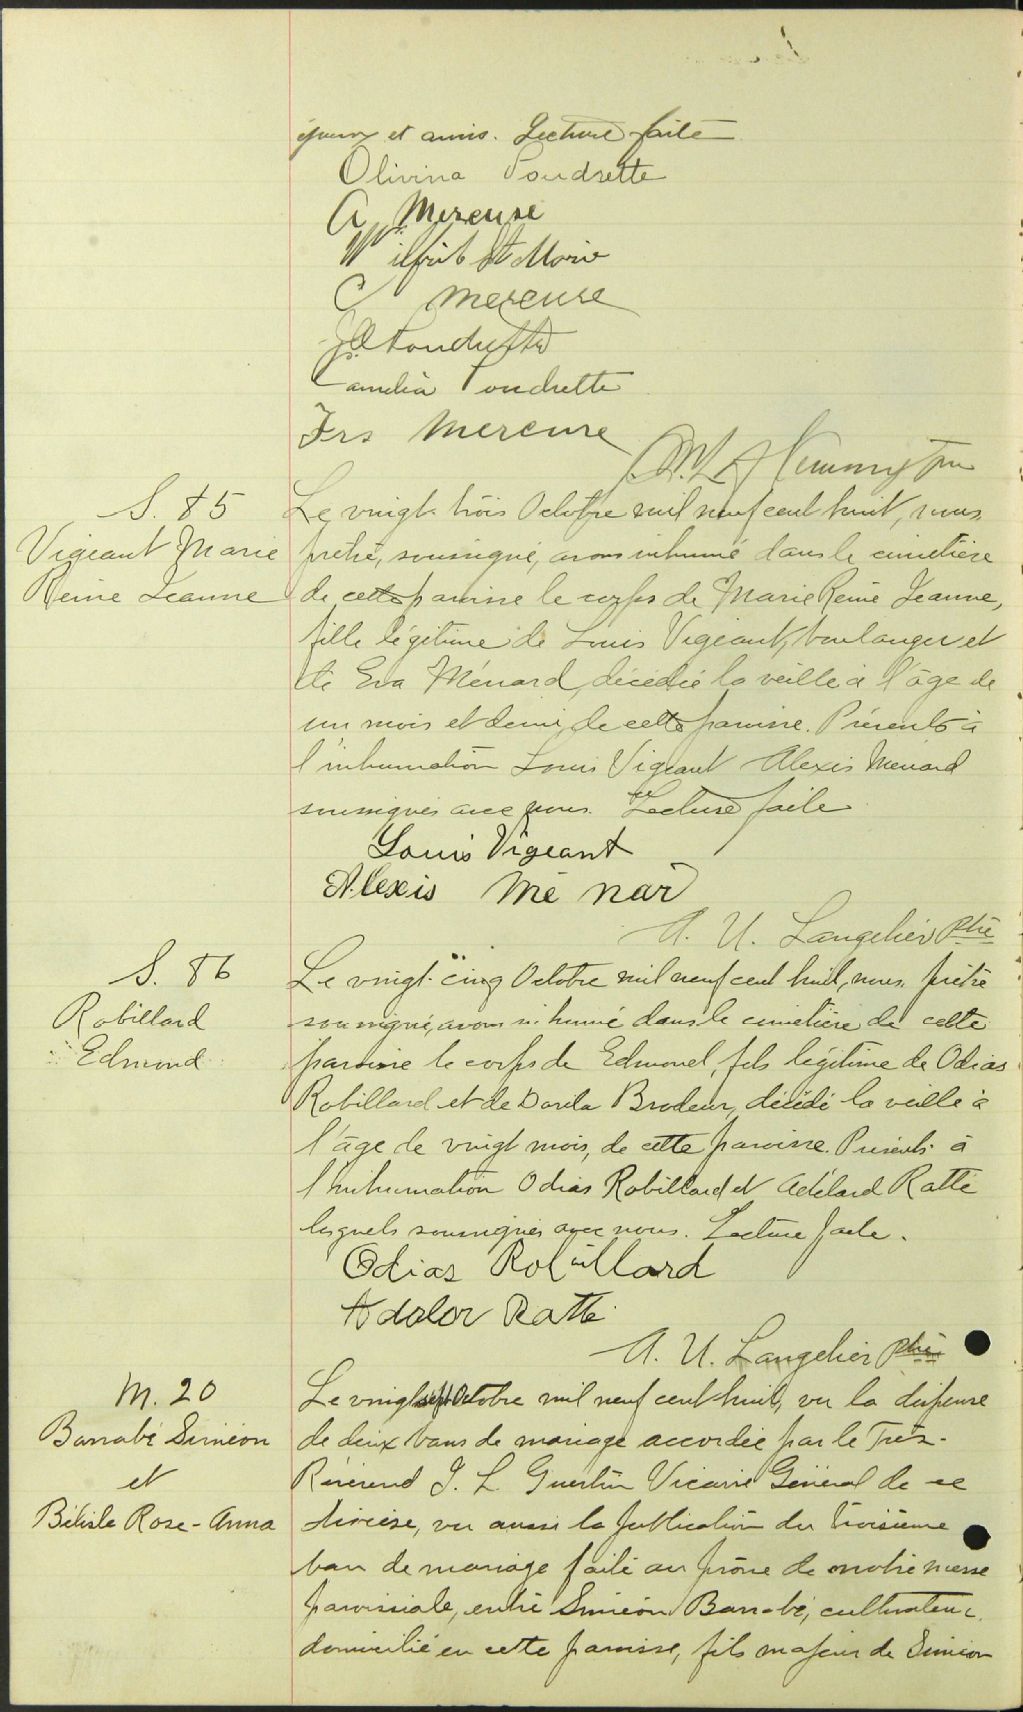 époux et amis. Lecture faite
Olivina Poudrette
A Mercure
Wilfrid St Marie
C mercure
Poudrette
Camélia Poudrette
Frs Mercure
S. 85
Vigeant Marie
Reine Jeanne
Le vingt-trois Octobre mil neuf cent huit, nous,
prêtre, soussigné, avons inhumé dans le cimetière
de cette paroisse le corps de Marie Reine Jeanne,
fille légitime de Louis Vigeant, boulanger et
de Eva Ménard, décédée la veille à l'âge de
un mois et demi, de cette paroisse. Présents à
l'inhumation Louis Vigeant Alexis Menard
soussignés avec nous. Lecture faite
Louis Vigeant
Alexis Mé nar
A. U. Langelier Ptre
S. 86
Robillard
Edmond
Le vingt-cinq Octobre mil neuf cent huit, nous, prêtre
soussigné, avons inhumé dans le cimetière de cette
paroisse le corps de Edmond, fils légitime de Odias
Robillard et de Brodeur, décédé la veille à
l'âge de vingt mois, de cette paroisse. Présents à
l'inhumation Odias Robillard et Adélard Ratté
lesquels soussignés avec nous. Lecture faite.
Odias Robillard
Adolor Ratté
A. U. Langelier Ptre
M. 20
Barrabé Siméon
et
Bélisle Rose-Anna
Le vingt sept Octobre mil neuf cent huit, vu la dispense
de deux bans de mariage accordée par le Très-
Révérend J. L Guertin Vicaire Général de ce
diocèse, vu aussi la publication du troisième
ban de mariage faite au prône de notre messe
paroissiale, entre Siméon Barrabé, cultivateur
domicilié en cette paroisse, fils majeur de Siméon